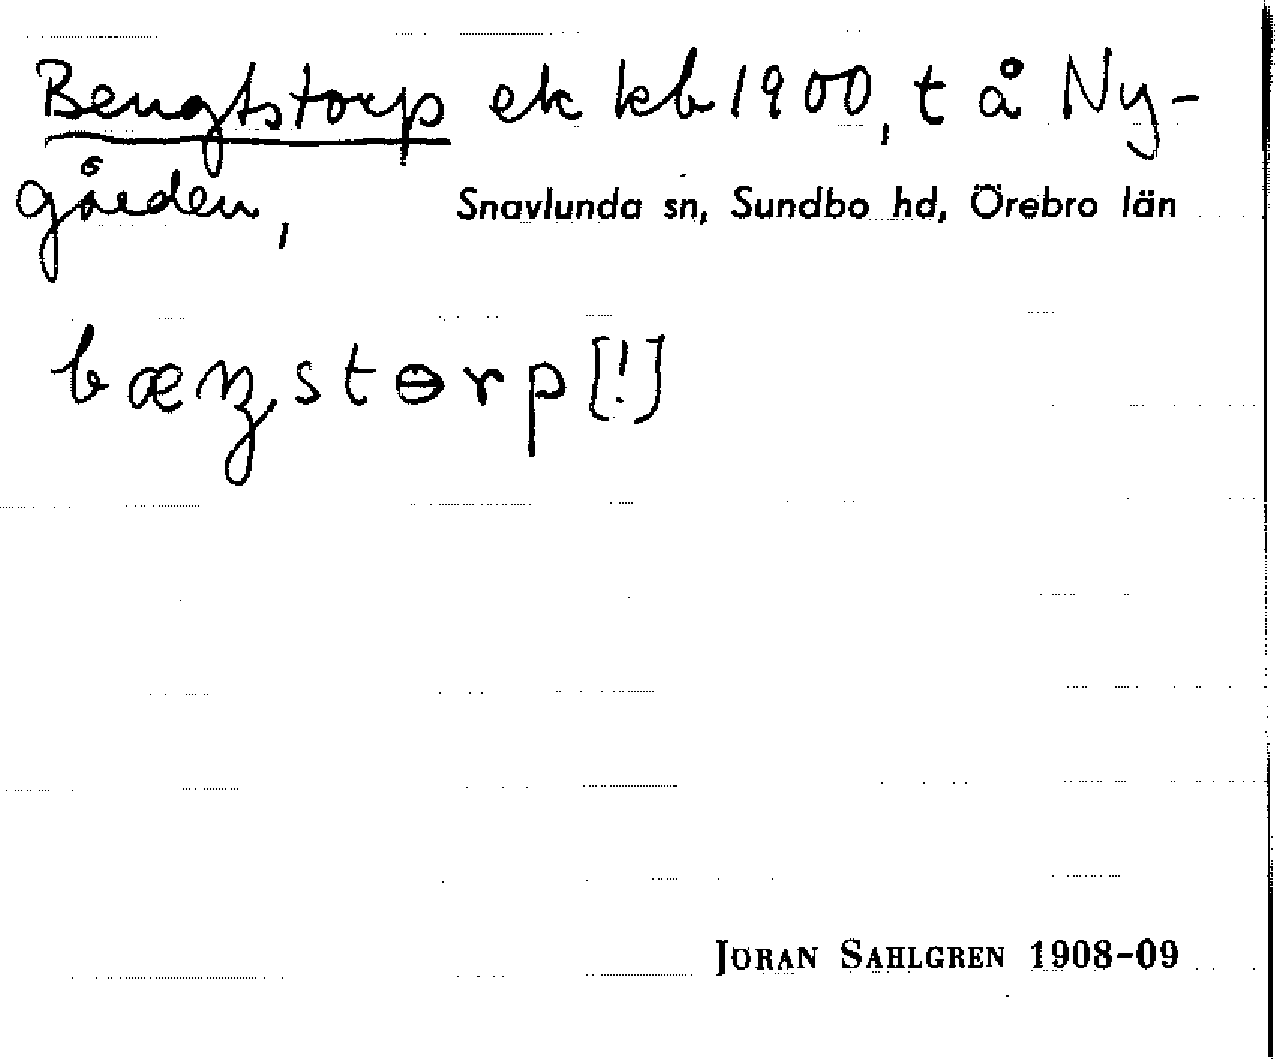 Bengtstorp ek kb 1900, t å Ny-
gården, Snavlunda sn, Sundbo hd, Örebro län
bæŋstɵrp [!]
JÖRAN SAHLGREN 1908-09